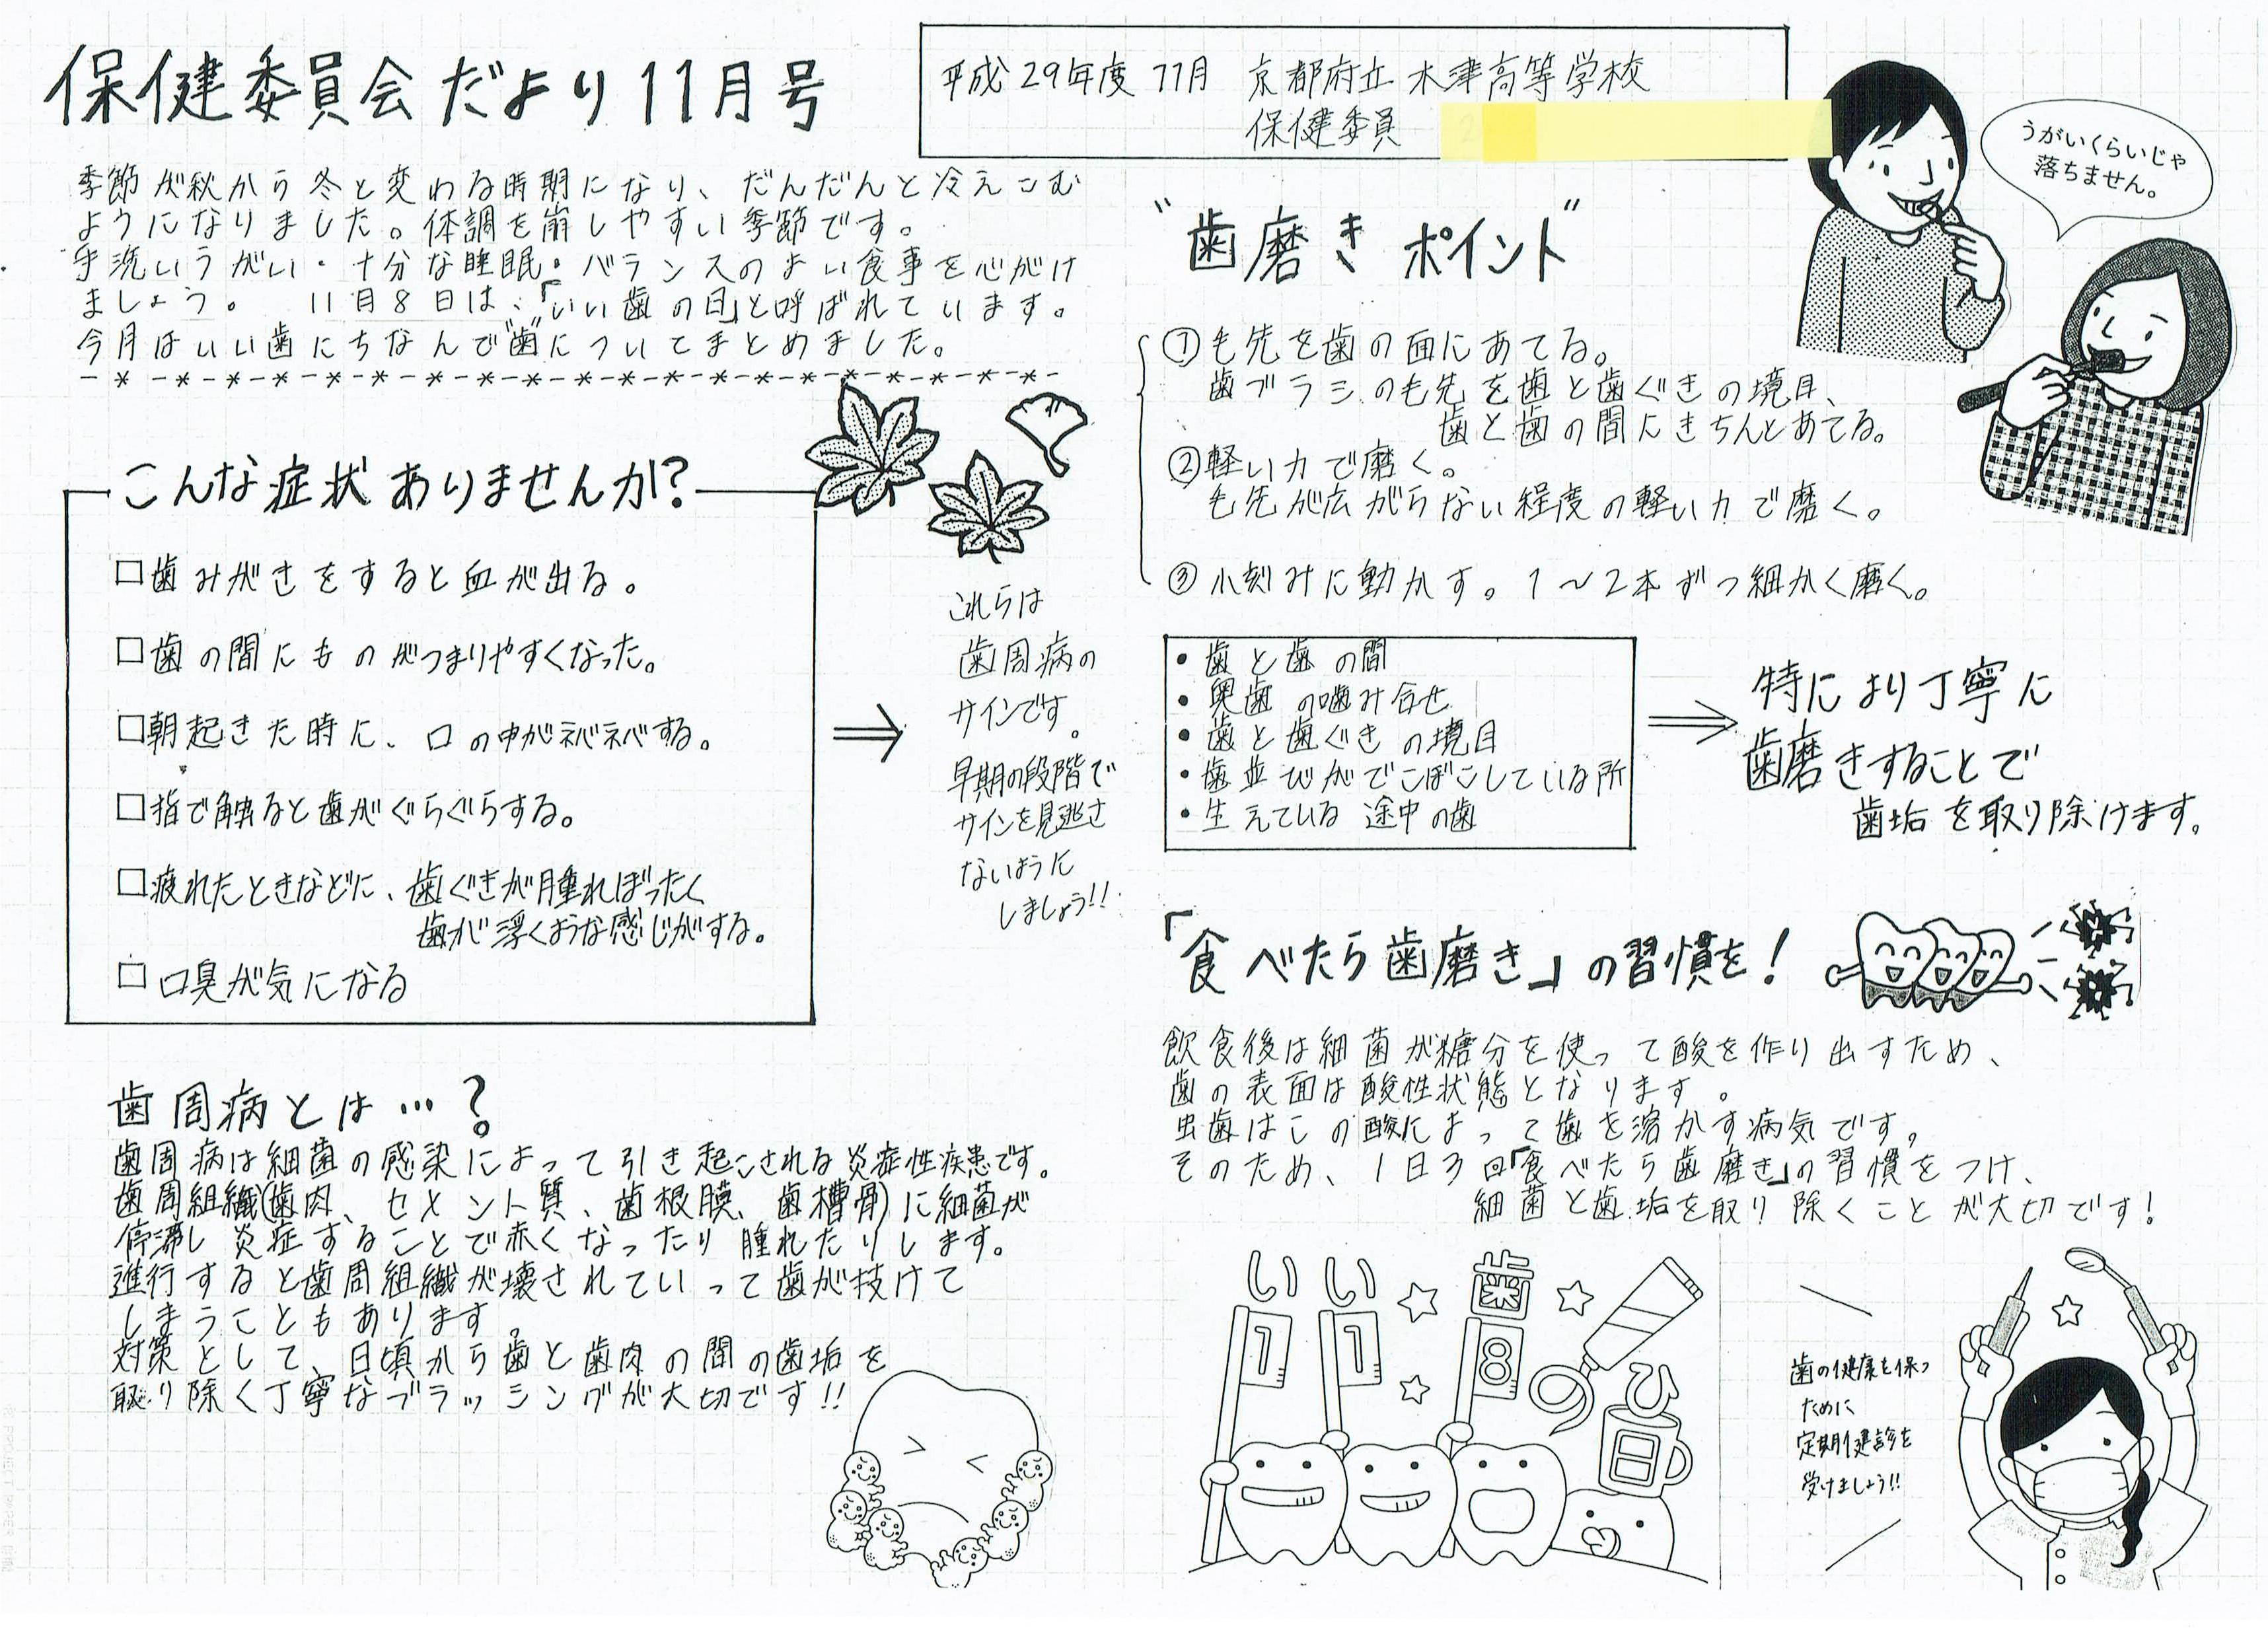 保健委員会だより11月号
平成29年度 11月 京都府立 木津高等学校
保健委員
季節が秋から冬と変わる時期になり、だんだんと冷えこむ
ようになりました。体調を崩しやすい季節です。
手洗いうがい・十分な睡眠・バランスのよい食事を心がけ
ましょう。 11月8日は、「いい歯の日」と呼ばれています。
今月はいい歯にちなんで"歯"についてまとめました。
こんな症状ありませんか?
□歯みがきをすると血が出る。
□歯の間にものがつまりやすくなった。
□朝起きた時に、口の中がネバネバする。
□指で触ると歯がぐらぐらする。
□疲れたときなどに、歯ぐきが腫れぼったく
歯が浮くような感じがする。
□口臭が気になる
⇒
これらは
歯周病の
サインです。
早期の段階で
サインを見逃さ
ないように
しましょう!!
歯周病とは…?
歯周病は細菌の感染によって引き起こされる炎症性疾患です。
歯周組織(歯肉、セメント質、歯根膜、歯槽骨)に細菌が
停滞し炎症することで赤くなったり腫れたりします。
進行すると歯周組織が壊されていって歯が抜けて
しまうこともあります。
対策として、日頃から歯と歯肉の間の歯垢を
取り除く丁寧なブラッシングが大切です!!
"歯磨きポイント"
うがいくらいじゃ
落ちません。
①毛先を歯の面にあてる。
歯ブラシのも先を歯と歯ぐきの境目、
歯と歯の間にきちんとあてる。
②軽い力で磨く。
毛先が広がらない程度の軽い力で磨く。
③小刻みに動かす。1〜2本ずつ細かく磨く。
・歯と歯の間
・奥歯の噛み合せ
・歯と歯ぐきの境目
・歯並びがでこぼこしている所
・生えている途中の歯
⇒
特により丁寧に
歯磨きすることで
歯垢を取り除けます。
「食べたら歯磨き」の習慣を!
飲食後は細菌が糖分を使って酸を作り出すため、
歯の表面は酸性状態となります。
虫歯はこの酸によって歯を溶かす病気です。
そのため、1日3回「食べたら歯磨き」の習慣をつけ、
細菌と歯垢を取り除くことが大切です!
いい歯の日
1 1 8
歯の健康を保つ
ために
定期健診を
受けましょう!!